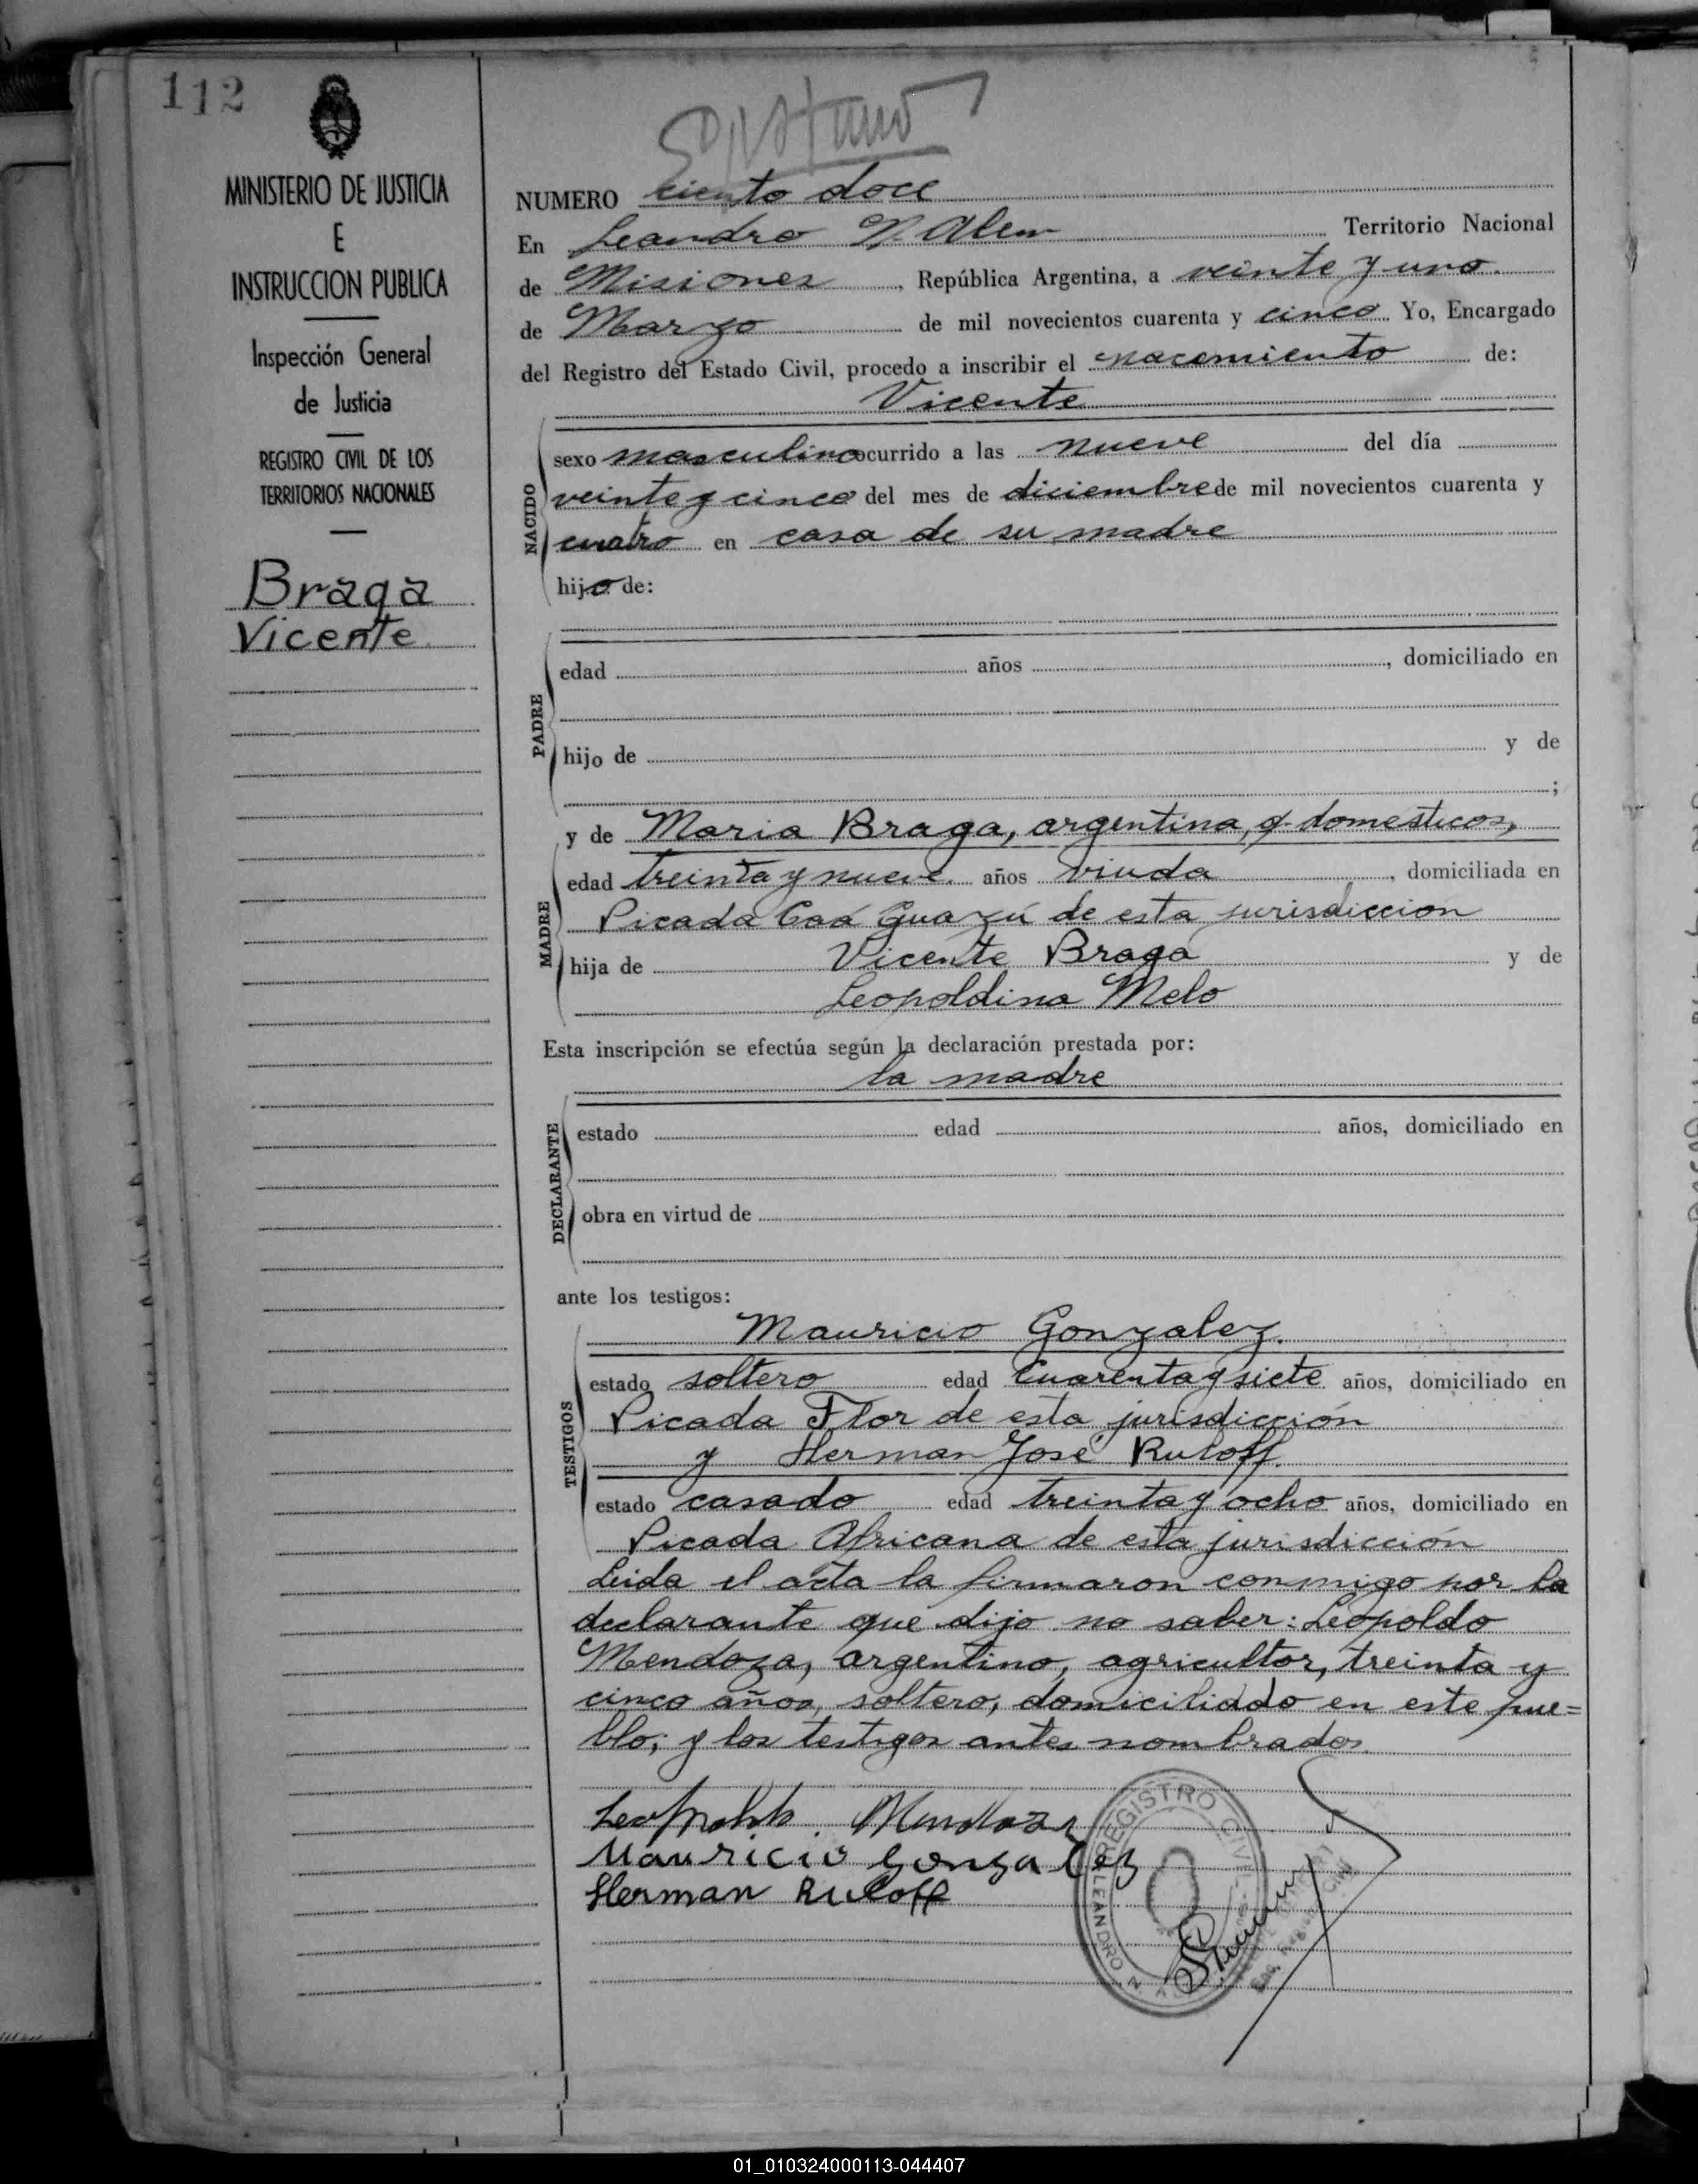 112
MINISTERIO DE JUSTICIA
E
INSTRUCCION PUBLICA
Inspección General
de Justicia
REGISTRO CIVIL DE LOS
TERRITORIOS NACIONALES
Braga
Vicente
NUMERO ciento doce
En Leandro N. Alem Territorio Nacional
de Misiones, República Argentina, a veinte y uno.
de Marzo de mil novecientos cuarenta y cinco. Yo, Encargado
del Registro del Estado Civil, procedo a inscribir el nacemiento de:
Vicente
NACIDO
sexo masculino ocurrido a las nueve del día
veinte y cinco del mes de diciembre de mil novecientos cuarenta y
cuatro en casa de su madre
hijo de:
PADRE
edad años , domiciliado en
hijo de y de
;
y de Maria Braga, argentina, q. domesticos,
MADRE
edad treinta y nueve. años viuda , domiciliada en
Picada Caá Guazú de esta jurisdiccion
hija de Vicente Braga y de
Leopoldina Melo
Esta inscripción se efectúa según la declaración prestada por:
la madre
DECLARANTE
estado edad años, domiciliado en
obra en virtud de
ante los testigos:
TESTIGOS
Mauricio Gonzalez.
estado soltero edad cuarenta y siete años, domiciliado en
Picada Flor de esta jurisdicción
y Herman José Ruloff.
estado casado edad treinta y ocho años, domiciliado en
Picada Africana de esta jurisdicción
Leida el acta la firmaron conmigo por la
declarante que dijo no saber: Leopoldo
Mendoza, argentino, agricultor, treinta y
cinco años, soltero, domiciliado en este pue=
blo; y los testigos antes nombrados.
Leopoldo Mendoza
Mauricio Gonzalez
Herman Ruloff
REGISTRO CIVIL
LEANDRO N.
01_010324000113-044407